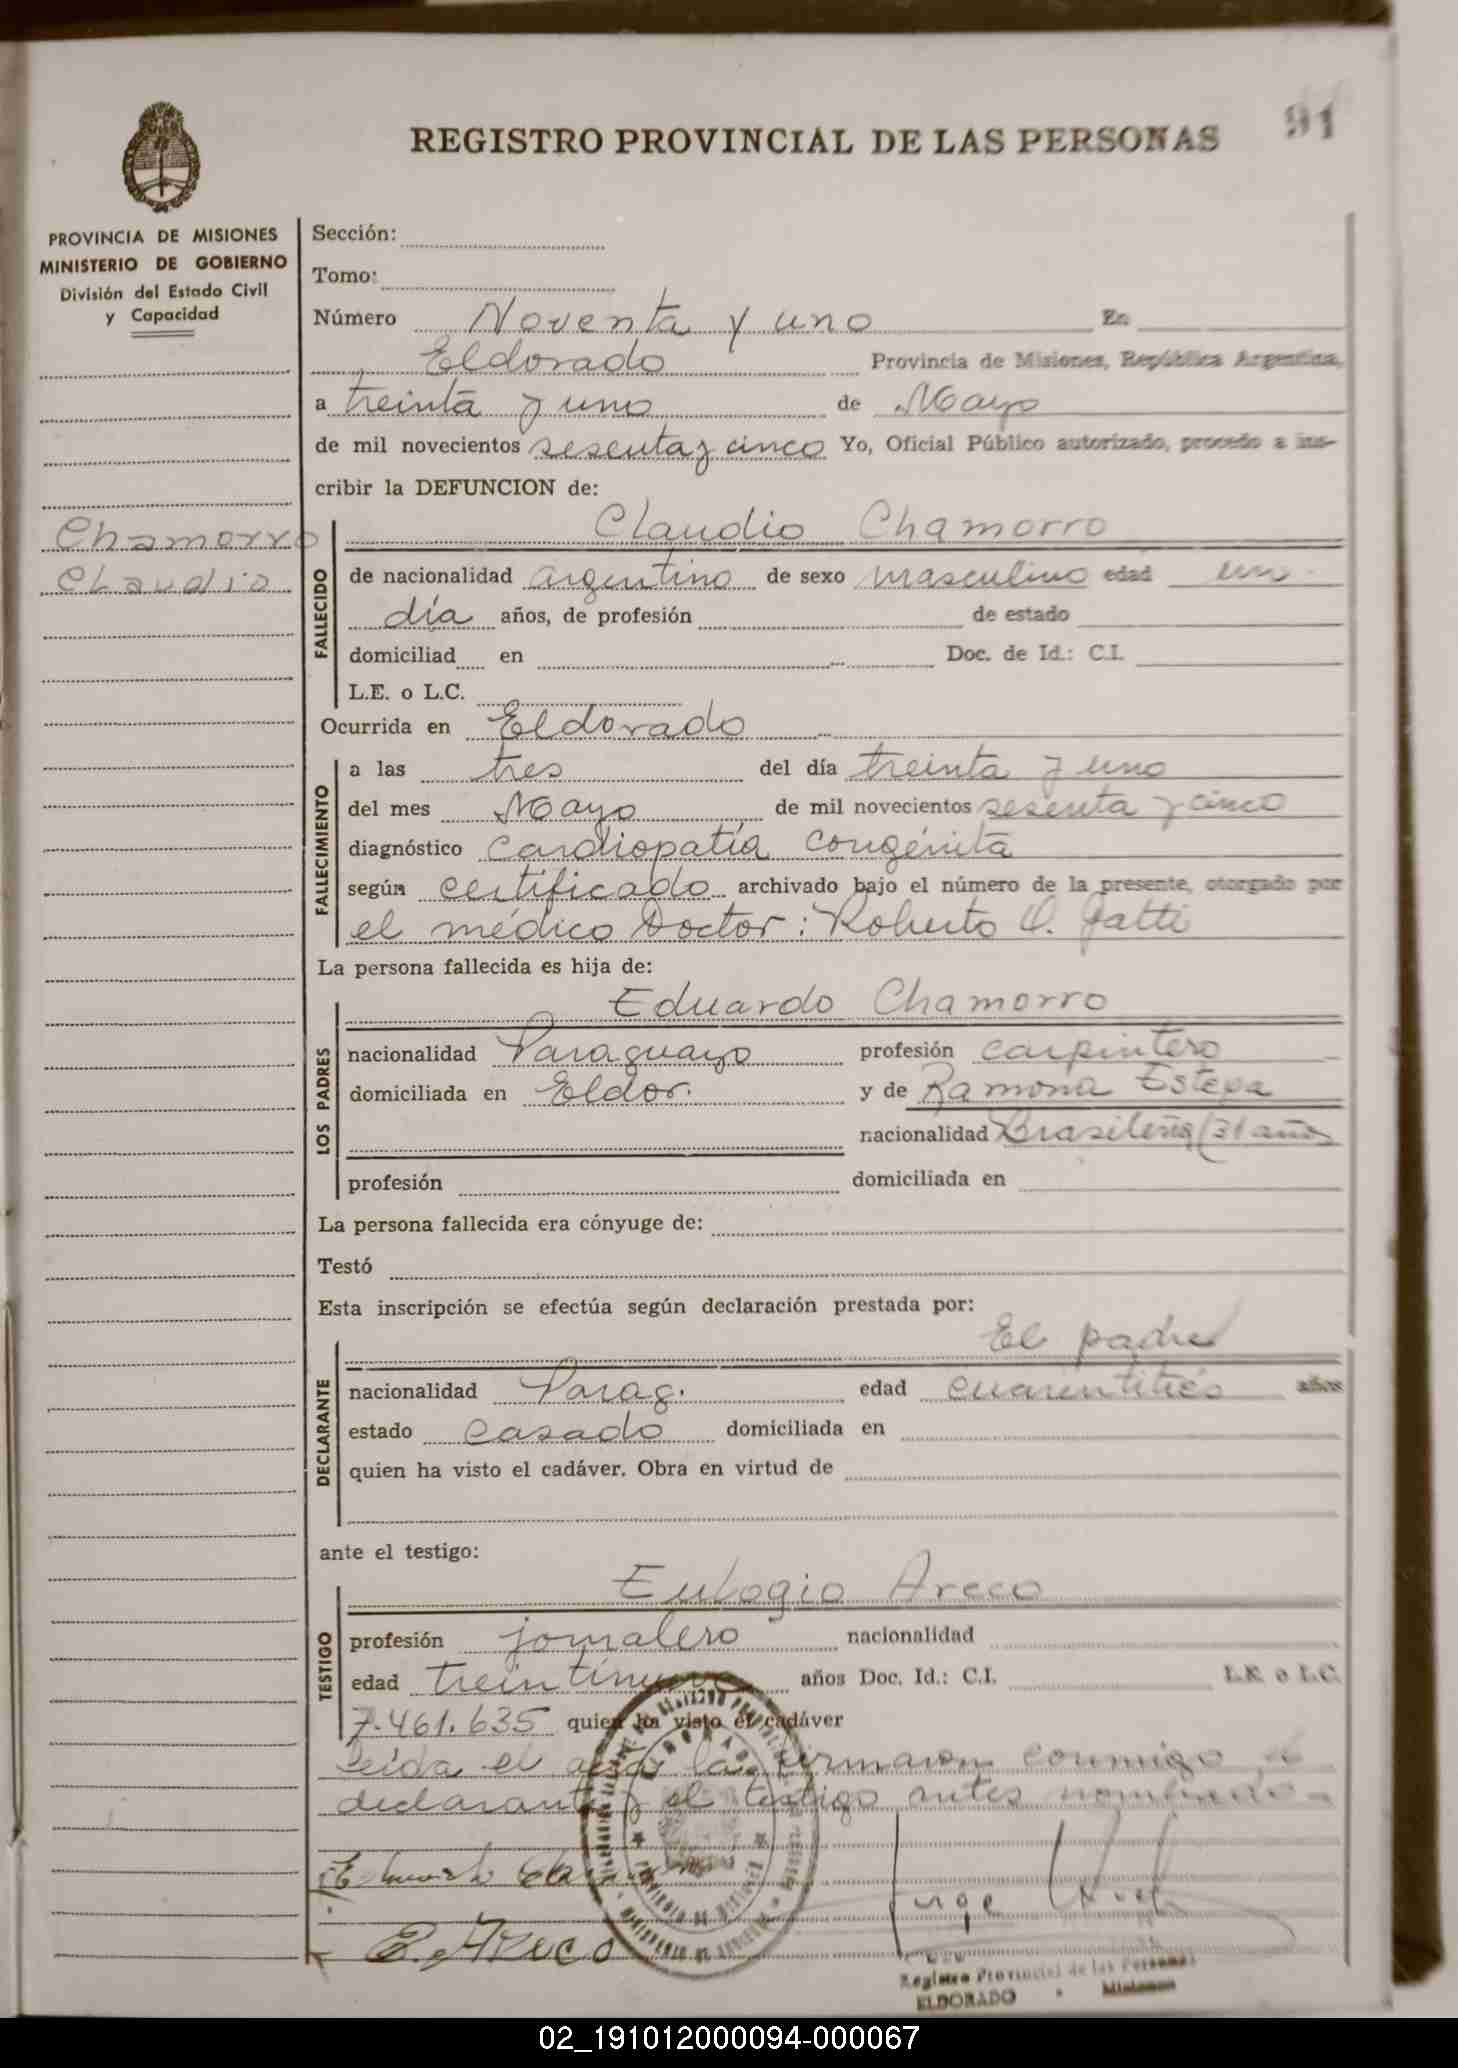 91
REGISTRO PROVINCIAL DE LAS PERSONAS
PROVINCIA DE MISIONES
MINISTERIO DE GOBIERNO
División del Estado Civil
y Capacidad
Chamorro
Claudio
Sección:
Tomo:
Número Noventa y uno En
Eldorado Provincia de Misiones, República Argentina,
a treinta y uno de Mayo
de mil novecientos sesenta y cinco Yo, Oficial Público autorizado, procedo a ins-
cribir la DEFUNCION de:
Claudio Chamorro
FALLECIDO
de nacionalidad argentino de sexo masculino edad un
día años, de profesión de estado
domiciliad en Doc. de Id.: C.I.
L.E. o L.C.
Ocurrida en Eldorado
FALLECIMIENTO
a las tres del día treinta y uno
del mes Mayo de mil novecientos sesenta y cinco
diagnóstico Cardiopatía congénita
según certificado archivado bajo el número de la presente, otorgado por
el médico Doctor: Roberto O. Gatti
La persona fallecida es hija de:
Eduardo Chamorro
LOS PADRES
nacionalidad Paraguayo profesión carpintero
domiciliada en Eldor. y de Ramona Estepa
nacionalidad Brasileña (31 años
profesión domiciliada en
La persona fallecida era cónyuge de:
Testó
Esta inscripción se efectúa según declaración prestada por:
El padre
DECLARANTE
nacionalidad Parag. edad cuarentitrés años
estado casado domiciliada en
quien ha visto el cadáver. Obra en virtud de
ante el testigo:
Eulogio Areco
TESTIGO
profesión jornalero nacionalidad
edad treintinueve años Doc. Id.: C.I. L.E. o L.C.
7.461.635 quien ha visto el cadáver
leída el acta la firmaron conmigo el
declarante y el testigo antes nombrado-
E. Areco
Jorge
Registro Provincial de las Personas
ELDORADO - Misiones
02_191012000094-000067